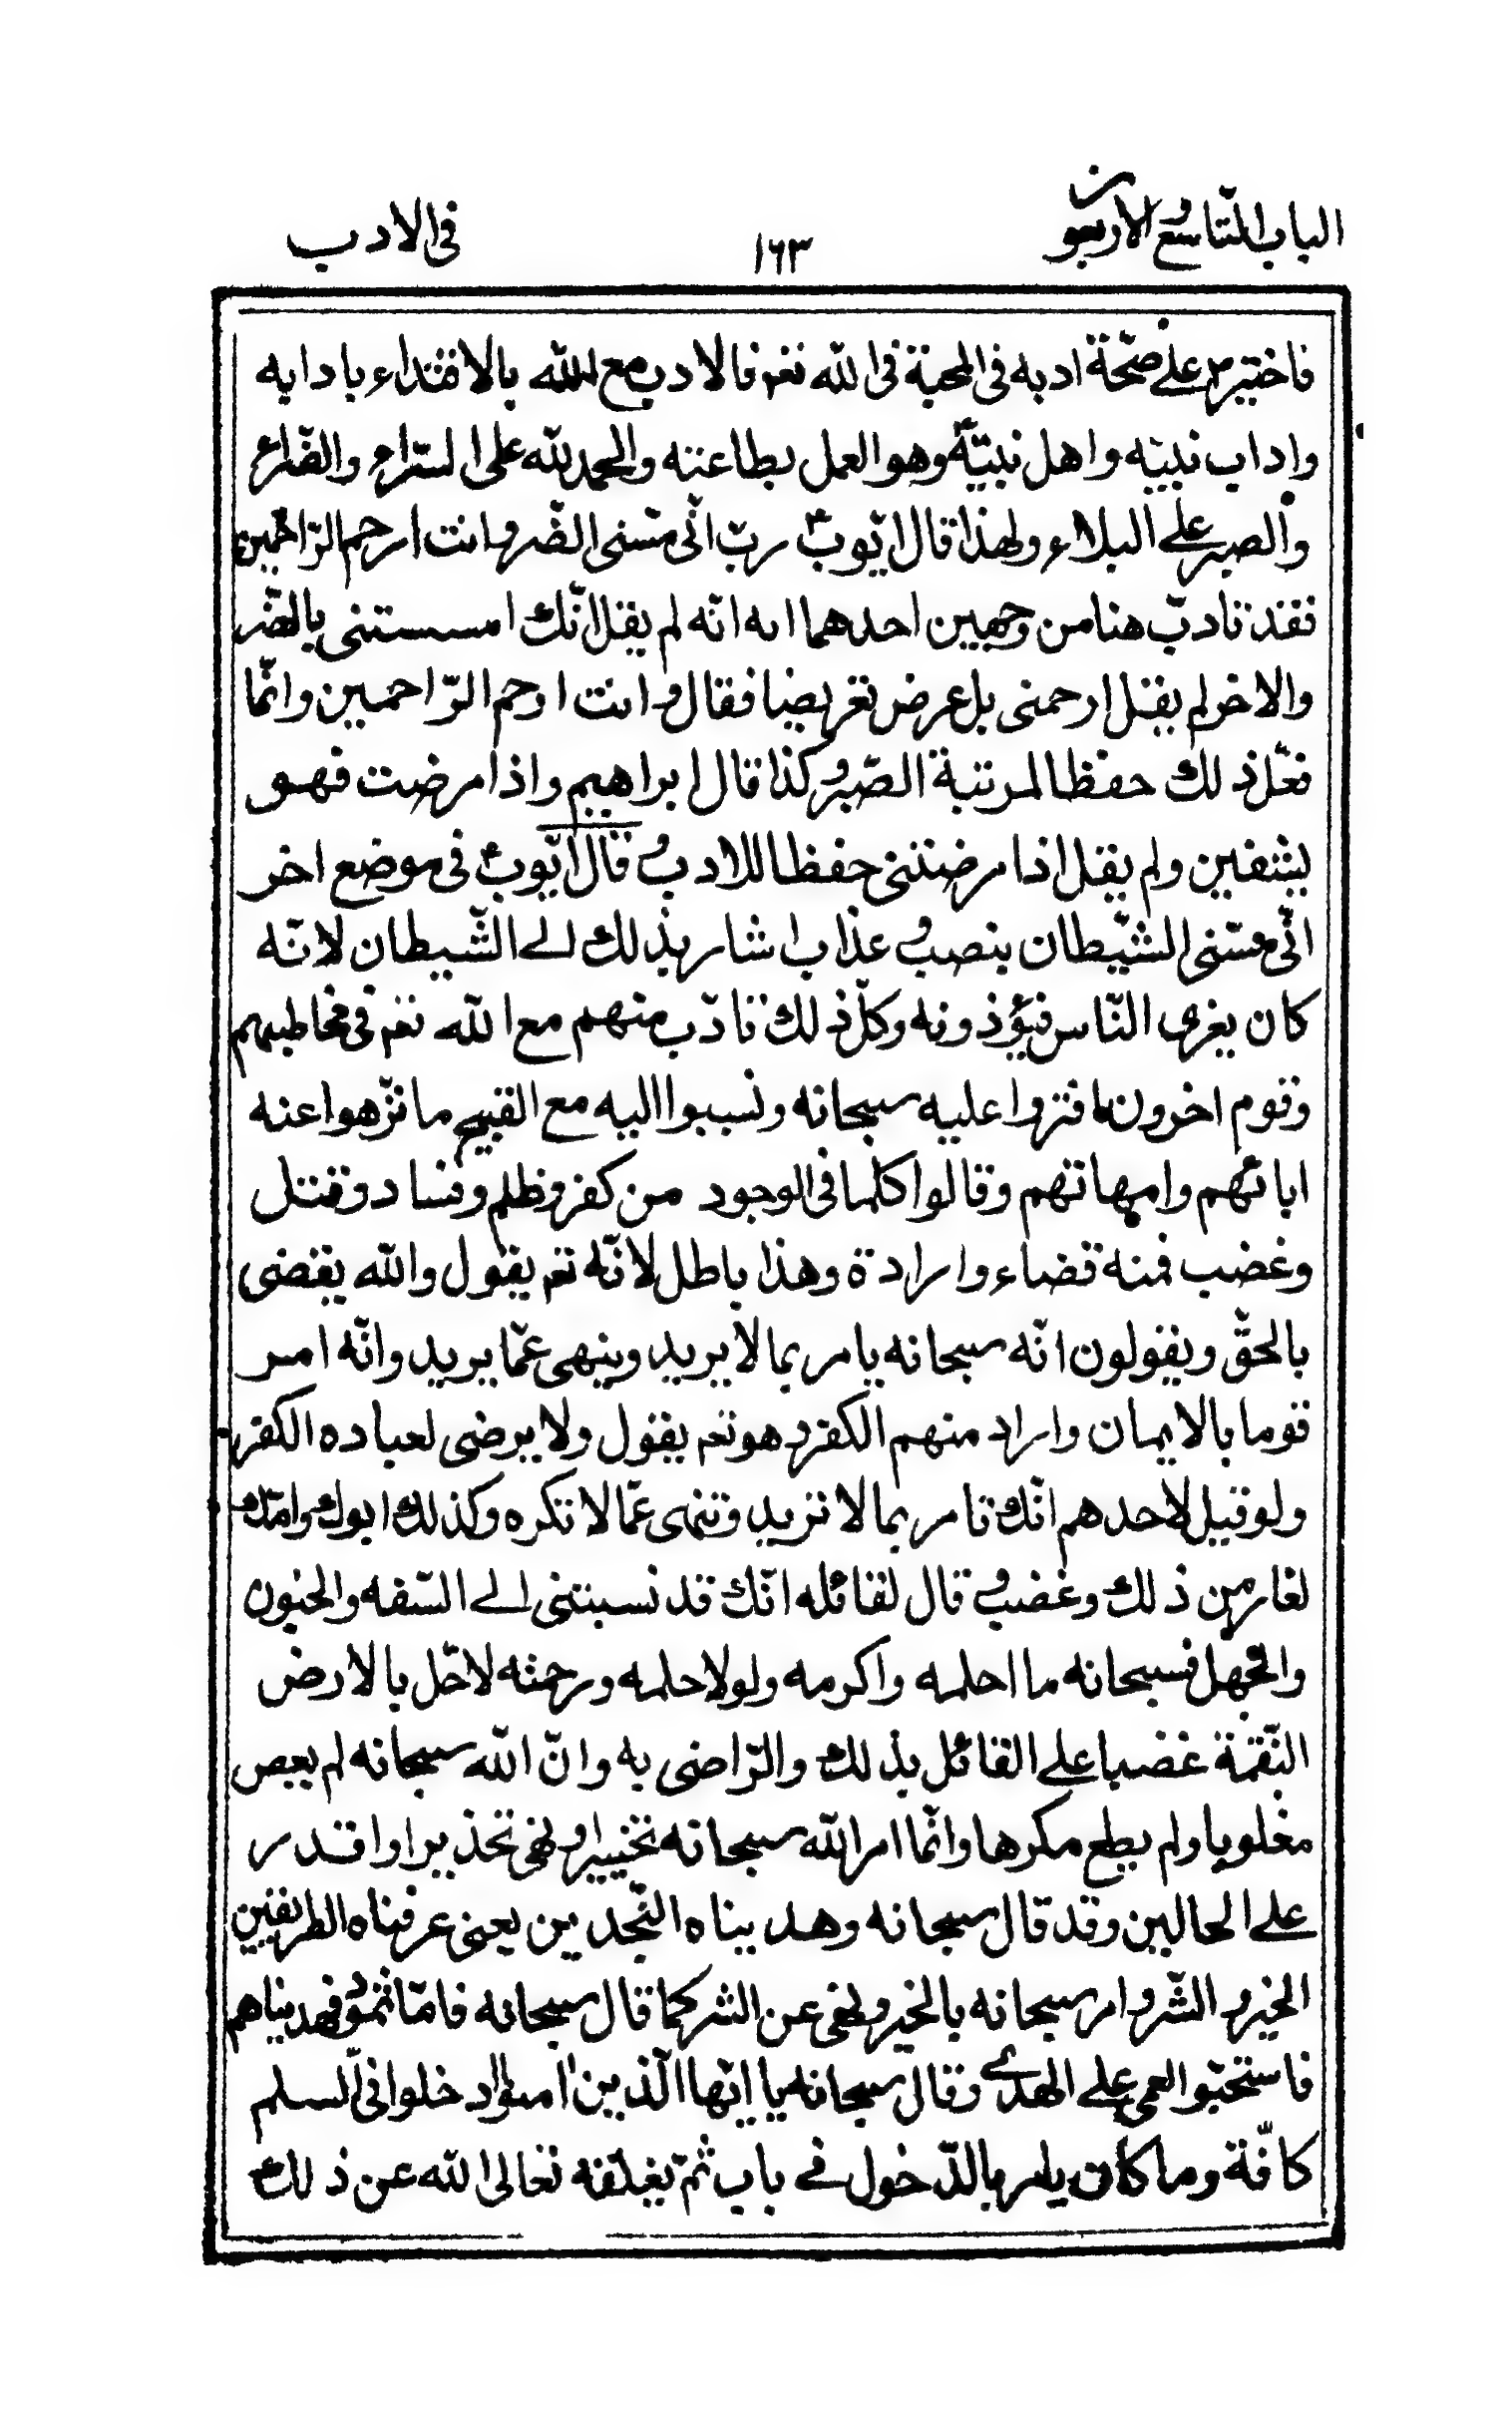 الباب التاسع والاربعون
١٦٣
فی الادب
فاختبرته علی صحّة ادبه فی المحبة فی الله تعم فالادب مع الله بالاقتداء بادابه
واداب نبیّه واهل نبیّه وهو العمل بطاعته والحمد لله علی السّراء والضّراء
والصبر علی البلاء ولهذا قال ایّوبؑ ربّ انّی مسّنی الضّر وانت ارحم الرّاحمین
فقد تادّب هنا من وجهین احدهما انه لم یقل انّك امسستنی بالضّر
والاخر لم یقل ارحمنی بل عرض تعریضا فقال وانت ارحم الرّاحمین وانّما
فعل ذلك حفظا لمرتبة الصّبر وكذا قال ابراهیم واذا مرضت فهو
یشفین ولم یقل اذا مرضتنی حفظا للادب وقال ایّوبؑ فی موضع اخر
انّی مسّنی الشّیطان بنصب وعذاب اشار بذلك الی الشّیطان لانّه
كان یغری النّاس فیؤذونه وكلّ ذلك تادّب منهم مع الله تعم فی مخاطبهم
وقوم اخرون افتروا علیه سبحانه ونسبوا الیه مع القبیح ما نزّهوا عنه
ابائهم وامهاتهم وقالوا كلما فی الوجود من كفر وظلم وفساد وقتل
وغضب فمنه قضاء وارادة وهذا باطل لانّه تعم یقول والله یقضی
بالحقّ ویقولون انّه سبحانه یامر بما لا یرید وینهی عمّا یرید وانّه امر
قوما بالایمان واراد منهم الكفر وهو تعم یقول ولا یرضی لعباده الكفر
ولو قیل لاحدهم انّك تامر بما لا ترید وتنهی عمّا لا تكره وكذلك ابوك وامّك
لغار من ذلك وغضب وقال لقائله انّك قد نسبتنی الی السّفه والجنون
والجهل فسبحانه ما احلمه واكرمه ولولا حلمه ورحمته لاحّل بالارض
النّقمة غضبا علی القائل بذلك والرّاضی به وانّ الله سبحانه لم یعص
مغلوبا ولم یطع مكرها وانّما امر الله سبحانه تخییرا ونهی تحذیرا واقدر
علی الحالین وقد قال سبحانه وهدیناه النّجدین یعنی عرفناه الطریقین
الخیر والشّر وامر سبحانه بالخیر ونهی عن الشر كما قال سبحانه فامّا ثمود فهدیناهم
فاستحبّوا العمی علی الهدی وقال سبحانه یا ایّها الّذین امنوا ادخلوا فی السلم
كافّة وما كان یامر بالدّخول فی باب ثمّ یغلقه تعالی الله عن ذلك